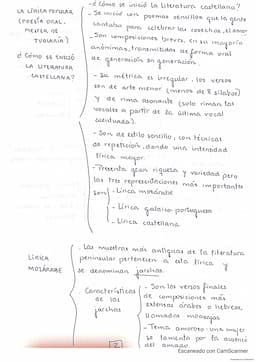 LA LÍRICA POPULAR
(POESÍA ORAL,
MESTER DE
JUGLARÍA)
¿CÓMO SE INICIÓ
LA LITERATURA
CASTELLANA?
¿Cómo se inició la literatura castellana?
- Se inició con poemas sencillos que la gente
cantaba para celebrar las cosechas, el amor
- Son composiciones breves, en su mayoría
anónimas, transmitidas de forma oral
de generación en generación.
- Su métrica es irregular, los versos
son de arte menor (menos de 8 sílabas)
y de rima asonante (solo riman las
vocales a partir de la última vocal
acentuada).
- Son de estilo sencillo, con técnicas
de repetición, dando una intensidad
lírica mayor.
- Presenta gran riqueza y variedad pero
las tres representaciones más importantes
son
- Lírica mozárabe
- Lírica galaico-portuguesa
- Lírica castellana
LÍRICA
MOZÁRABE
- Las muestras más antiguas de la literatura
peninsular pertenecen a esta lírica y
se denominan jarchas.
- Características
de las
jarchas
- Son los versos finales
de composiciones más
extensas árabes o hebreas,
llamadas moaxajas
- Tema amoroso: una mujer
se lamenta por la ausencia
del amado.
2
Escaneado con CamScanner